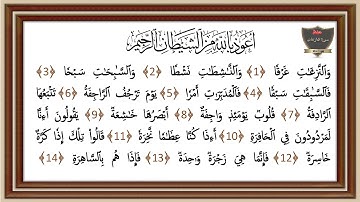 أعوذ بالله من الشيطان الرجيم
وَالنَّٰزِعَٰتِ غَرْقًا ﴿1﴾ وَالنَّٰشِطَٰتِ نَشْطًا ﴿2﴾ وَالسَّٰبِحَٰتِ سَبْحًا ﴿3﴾
فَالسَّٰبِقَٰتِ سَبْقًا ﴿4﴾ فَالْمُدَبِّرَٰتِ أَمْرًا ﴿5﴾ يَوْمَ تَرْجُفُ الرَّاجِفَةُ ﴿6﴾ تَتْبَعُهَا
الرَّادِفَةُ ﴿7﴾ قُلُوبٌ يَوْمَئِذٍ وَاجِفَةٌ ﴿8﴾ أَبْصَٰرُهَا خَٰشِعَةٌ ﴿9﴾ يَقُولُونَ أَءِنَّا
لَمَرْدُودُونَ فِي الْحَافِرَةِ ﴿10﴾ أَءِذَا كُنَّا عِظَٰمًا نَّخِرَةً ﴿11﴾ قَالُوا تِلْكَ إِذًا كَرَّةٌ
خَاسِرَةٌ ﴿12﴾ فَإِنَّمَا هِيَ زَجْرَةٌ وَٰحِدَةٌ ﴿13﴾ فَإِذَا هُم بِالسَّاهِرَةِ ﴿14﴾